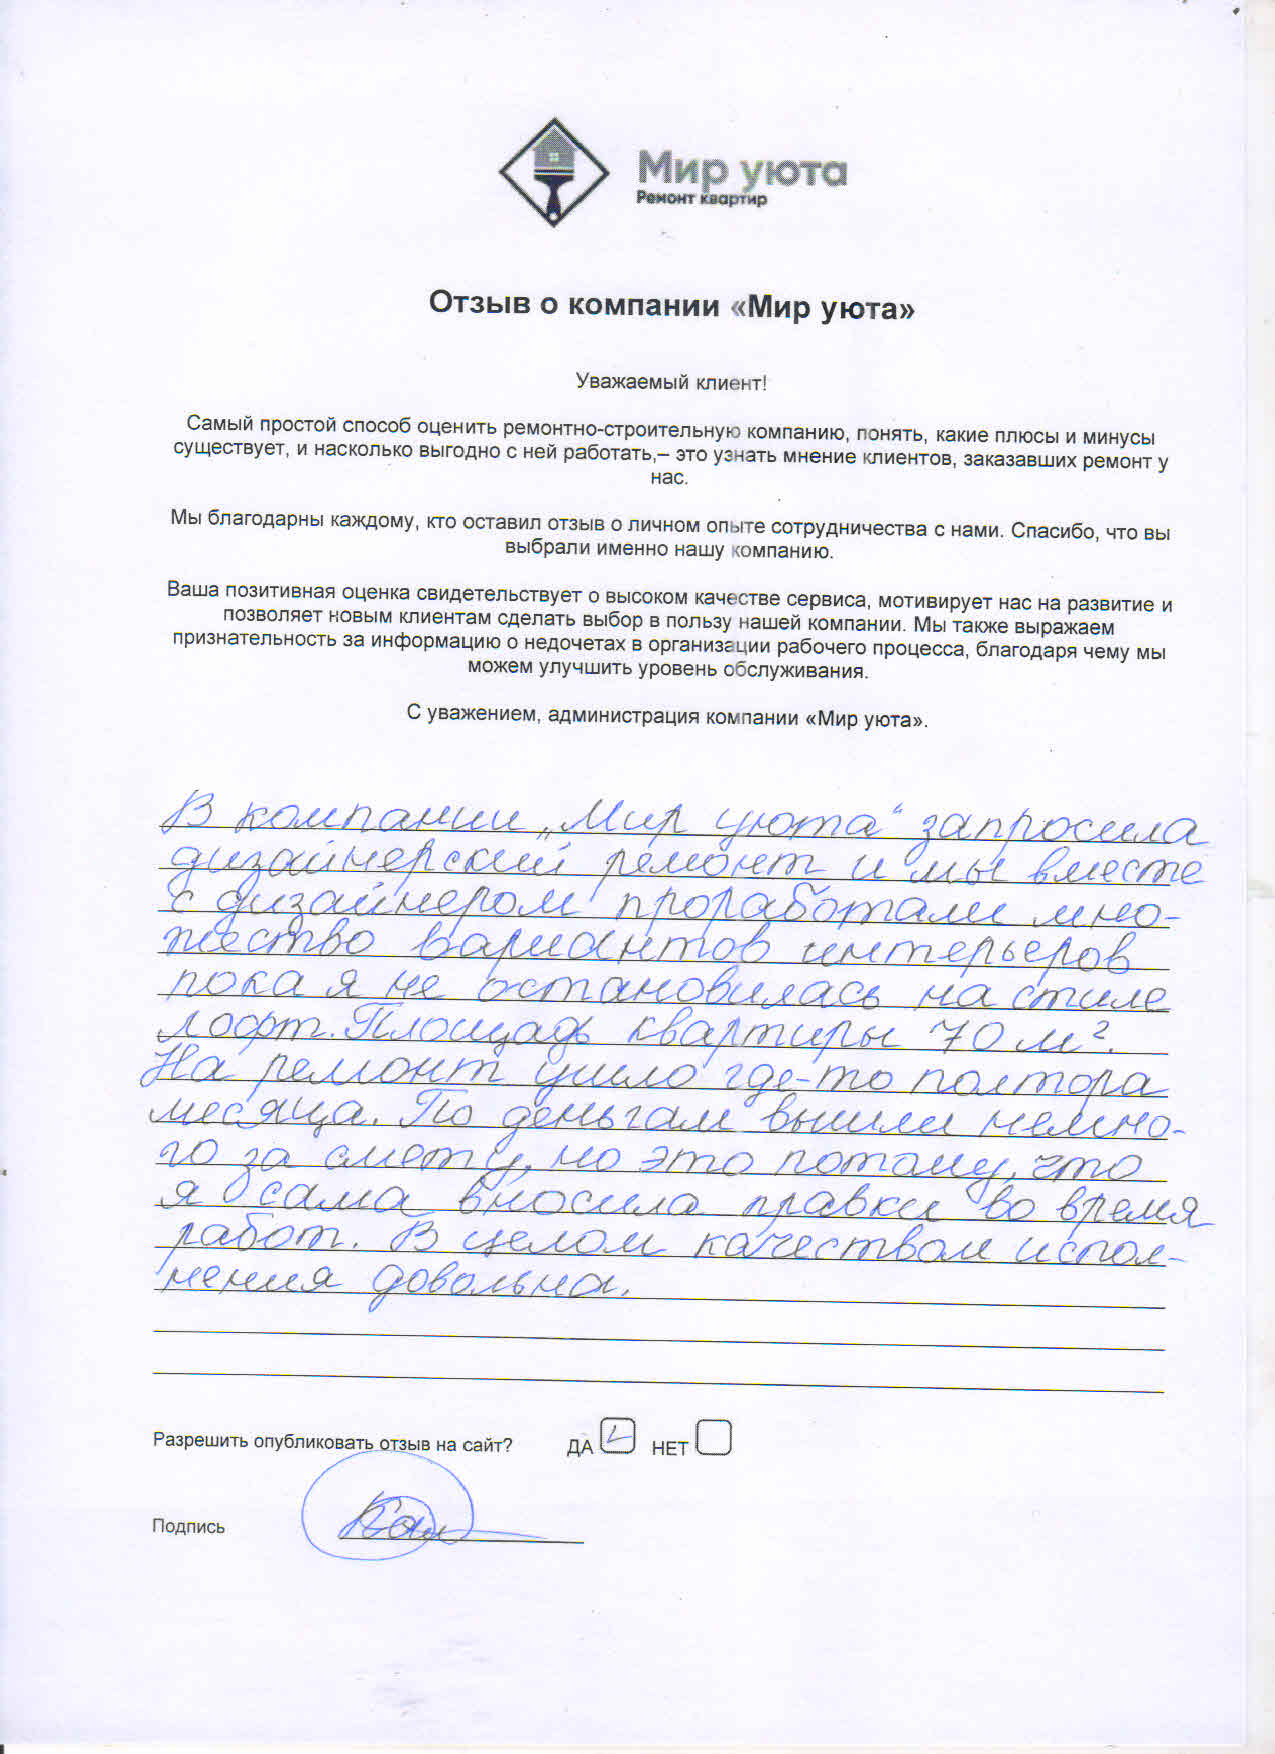 Мир уюта
Ремонт квартир
Отзыв о компании «Мир уюта»
Уважаемый клиент!
Самый простой способ оценить ремонтно-строительную компанию, понять, какие плюсы и минусы
существует, и насколько выгодно с ней работать,– это узнать мнение клиентов, заказавших ремонт у
нас.
Мы благодарны каждому, кто оставил отзыв о личном опыте сотрудничества с нами. Спасибо, что вы
выбрали именно нашу компанию.
Ваша позитивная оценка свидетельствует о высоком качестве сервиса, мотивирует нас на развитие и
позволяет новым клиентам сделать выбор в пользу нашей компании. Мы также выражаем
признательность за информацию о недочетах в организации рабочего процесса, благодаря чему мы
можем улучшить уровень обслуживания.
С уважением, администрация компании «Мир уюта».
В компании „Мир уюта“ запросила
дизайнерский ремонт и мы вместе
с дизайнером проработали мно-
жество вариантов интерьеров
пока я не остановилась на стиле
лофт. Площадь квартиры 70 м².
На ремонт ушло где-то полтора
месяца. По деньгам вышли немно-
го за смету, но это потому, что
я сама вносила правки во время
работ. В целом качеством испол-
нения довольна.
Разрешить опубликовать отзыв на сайт? ДА НЕТ
Подпись